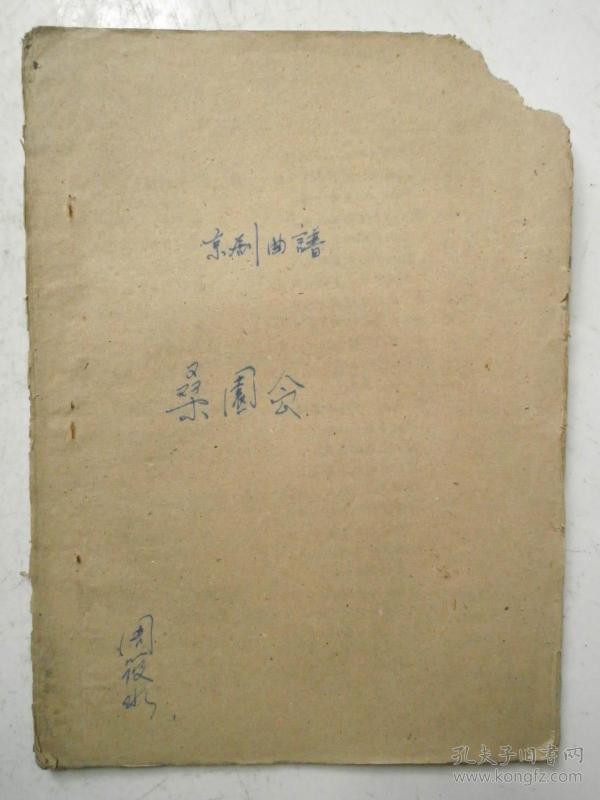 京剧曲譜
桑園会
周筱
孔夫子旧书网
www.kongfz.com